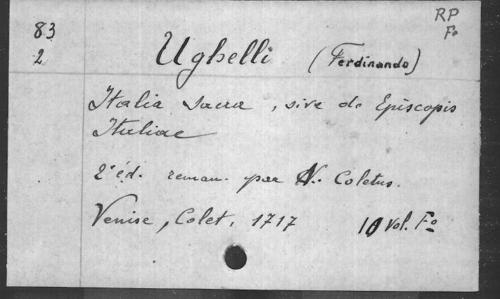 RP
Fo
83
2
Ughelli (Ferdinando)
Italia sacra, sive de Episcopis
Italiae
2e éd. reman. par N. Coletus.
Venise, Colet, 1717 10 vol. Fo